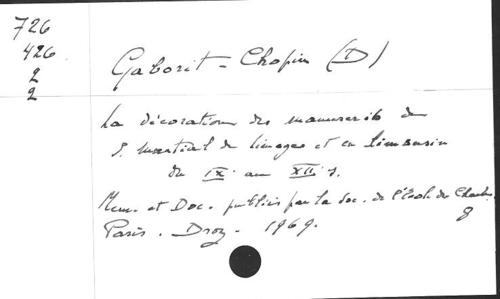 726
426
2
2
Gaborit - Chopin (D)
La décoration des manuscrits de
S. Martial de Limoges et en Limousin
du IX au XII s.
Mem. et Doc. publiés par la Soc. de l'École des Chartes.
8
Paris. Droz. 1969.